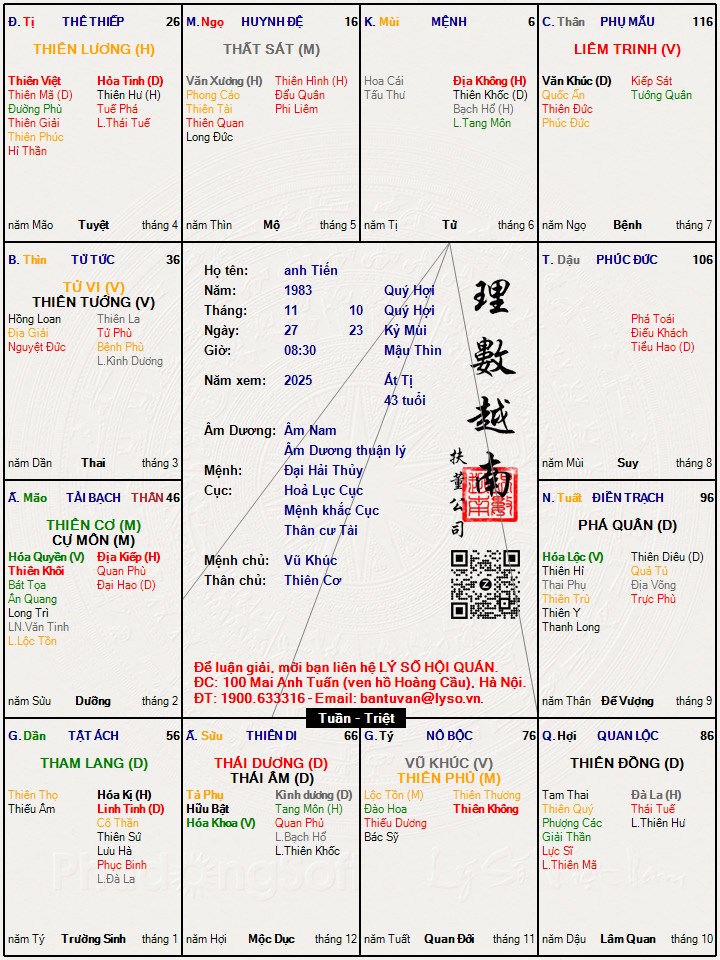 Đ. Tị THÊ THIẾP 26
THIÊN LƯƠNG (H)
Thiên Việt Hỏa Tinh (D)
Thiên Mã (D) Thiên Hư (H)
Đường Phù Tuế Phá
Thiên Giải L.Thái Tuế
Thiên Phúc
Hỉ Thần
năm Mão Tuyệt tháng 4
M. Ngọ HUYNH ĐỆ 16
THẤT SÁT (M)
Văn Xương (H) Thiên Hình (H)
Phong Cáo Đẩu Quân
Thiên Tài Phi Liêm
Thiên Quan
Long Đức
năm Thìn Mộ tháng 5
K. Mùi MỆNH 6
Hoa Cái Địa Không (H)
Tấu Thư Thiên Khốc (D)
Bạch Hổ (H)
L.Tang Môn
năm Tị Tử tháng 6
C. Thân PHỤ MẪU 116
LIÊM TRINH (V)
Văn Khúc (D) Kiếp Sát
Quốc Ấn Tướng Quân
Thiên Đức
Phúc Đức
năm Ngọ Bệnh tháng 7
B. Thìn TỬ TỨC 36
TỬ VI (V)
THIÊN TƯỚNG (V)
Hồng Loan Thiên La
Địa Giải Tử Phù
Nguyệt Đức Bệnh Phù
L.Kình Dương
năm Dần Thai tháng 3
Họ tên: anh Tiến
Năm: 1983 Quý Hợi
Tháng: 11 10 Quý Hợi
Ngày: 27 23 Kỷ Mùi
Giờ: 08:30 Mậu Thìn
Năm xem: 2025 Ất Tị
43 tuổi
Âm Dương: Âm Nam
Âm Dương thuận lý
Mệnh: Đại Hải Thủy
Cục: Hoả Lục Cục
Mệnh khắc Cục
Thân cư Tài
Mệnh chủ: Vũ Khúc
Thân chủ: Thiên Cơ
理數越南
扶董公司
Z
Để luận giải, mời bạn liên hệ LÝ SỐ HỘI QUÁN.
ĐC: 100 Mai Anh Tuấn (ven hồ Hoàng Cầu), Hà Nội.
ĐT: 1900.633316 - Email: bantuvan@lyso.vn.
Tuần - Triệt
T. Dậu PHÚC ĐỨC 106
Phá Toái
Điếu Khách
Tiểu Hao (D)
năm Mùi Suy tháng 8
Ấ. Mão TÀI BẠCH THÂN 46
THIÊN CƠ (M)
CỰ MÔN (M)
Hóa Quyền (V) Địa Kiếp (H)
Thiên Khôi Quan Phù
Bát Tọa Đại Hao (D)
Ân Quang
Long Trì
LN.Văn Tinh
L.Lộc Tồn
năm Sửu Dưỡng tháng 2
N. Tuất ĐIỀN TRẠCH 96
PHÁ QUÂN (D)
Hóa Lộc (V) Thiên Diêu (D)
Thiên Hỉ Quả Tú
Thai Phụ Địa Võng
Thiên Trù Trực Phù
Thiên Y
Thanh Long
năm Thân Đế Vượng tháng 9
G. Dần TẬT ÁCH 56
THAM LANG (D)
Thiên Thọ Hóa Kị (H)
Thiếu Âm Linh Tinh (D)
Cô Thần
Thiên Sứ
Lưu Hà
Phục Binh
L.Đà La
năm Tý Trường Sinh tháng 1
Ấ. Sửu THIÊN DI 66
THÁI DƯƠNG (D)
THÁI ÂM (D)
Tả Phụ Kình dương (D)
Hữu Bật Tang Môn (H)
Hóa Khoa (V) Quan Phủ
L.Bạch Hổ
L.Thiên Khốc
năm Hợi Mộc Dục tháng 12
G. Tý NÔ BỘC 76
VŨ KHÚC (V)
THIÊN PHỦ (M)
Lộc Tồn (M) Thiên Thương
Đào Hoa Thiên Không
Thiếu Dương
Bác Sỹ
năm Tuất Quan Đới tháng 11
Q. Hợi QUAN LỘC 86
THIÊN ĐỒNG (D)
Tam Thai Đà La (H)
Thiên Quý Thái Tuế
Phượng Các L.Thiên Hư
Giải Thần
Lực Sĩ
L.Thiên Mã
năm Dậu Lâm Quan tháng 10